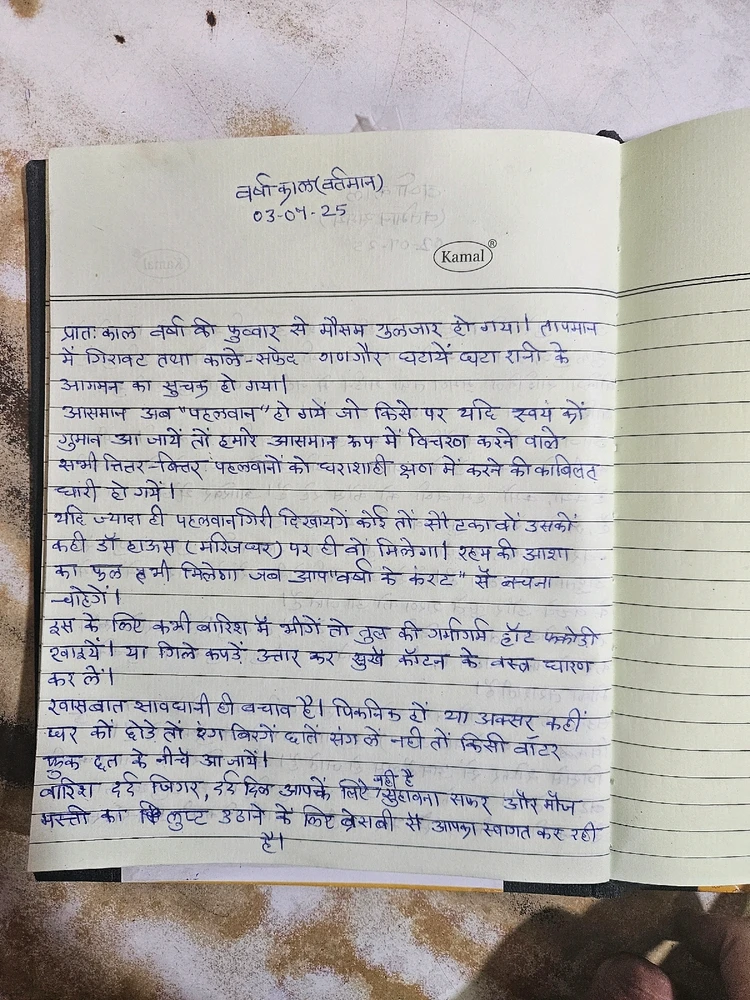 वर्षा काल (वर्तमान)
03-07-25
Kamal®
प्रातः काल वर्षा की फुव्वार से मौसम गुलजार हो गया। तापमान
में गिरावट तथा काले-सफेद गणगौर घटायें घटा रानी के
आगमन का सुचक हो गया।
आसमान अब "पहलवान" हो गयें जो किसे पर यदि स्वयं कों
गुमान आ जायें तों हमारे आसमान रूप में विचरण करने वाले
सभी तितर-बितर पहलवानों को धराशाही क्षण में करने की काबिलत
धारी हो गयें।
यदि ज्यादा ही पहलवानगिरी दिखायगें कोई तों सौ टका वों उसकों
कही डॉ हाऊस (मरिजघर) पर ही वों मिलेगा। रहम की आशा
का फुल तभी मिलेगा जब आप "वर्षा के करंट" सें बचना
चाहेगें।
इस के लिए कभी बारिश में भीगें तो तुल की गर्मागर्म हॉट पकोडी
खाइयें। या गिले कपडें उत्तार कर सुखे कॉटन के वस्त्र धारण
कर लें।
खासबात सावधानी ही बचाव है। पिकनिक हों या अक्सर कहीं
घर कों छोडे तों रंग बिरगें छातें संग लें नही तों किसी वॉटर
फुक छत के नीचें आ जायें।
नही है
बारिश दर्द जिगर, दर्द दिल आपकें लिए सुहावना सफर और मौज
मस्ती का लुप्ट उठाने के लिए बेसबी सें आपका स्वागत कर रही
है।